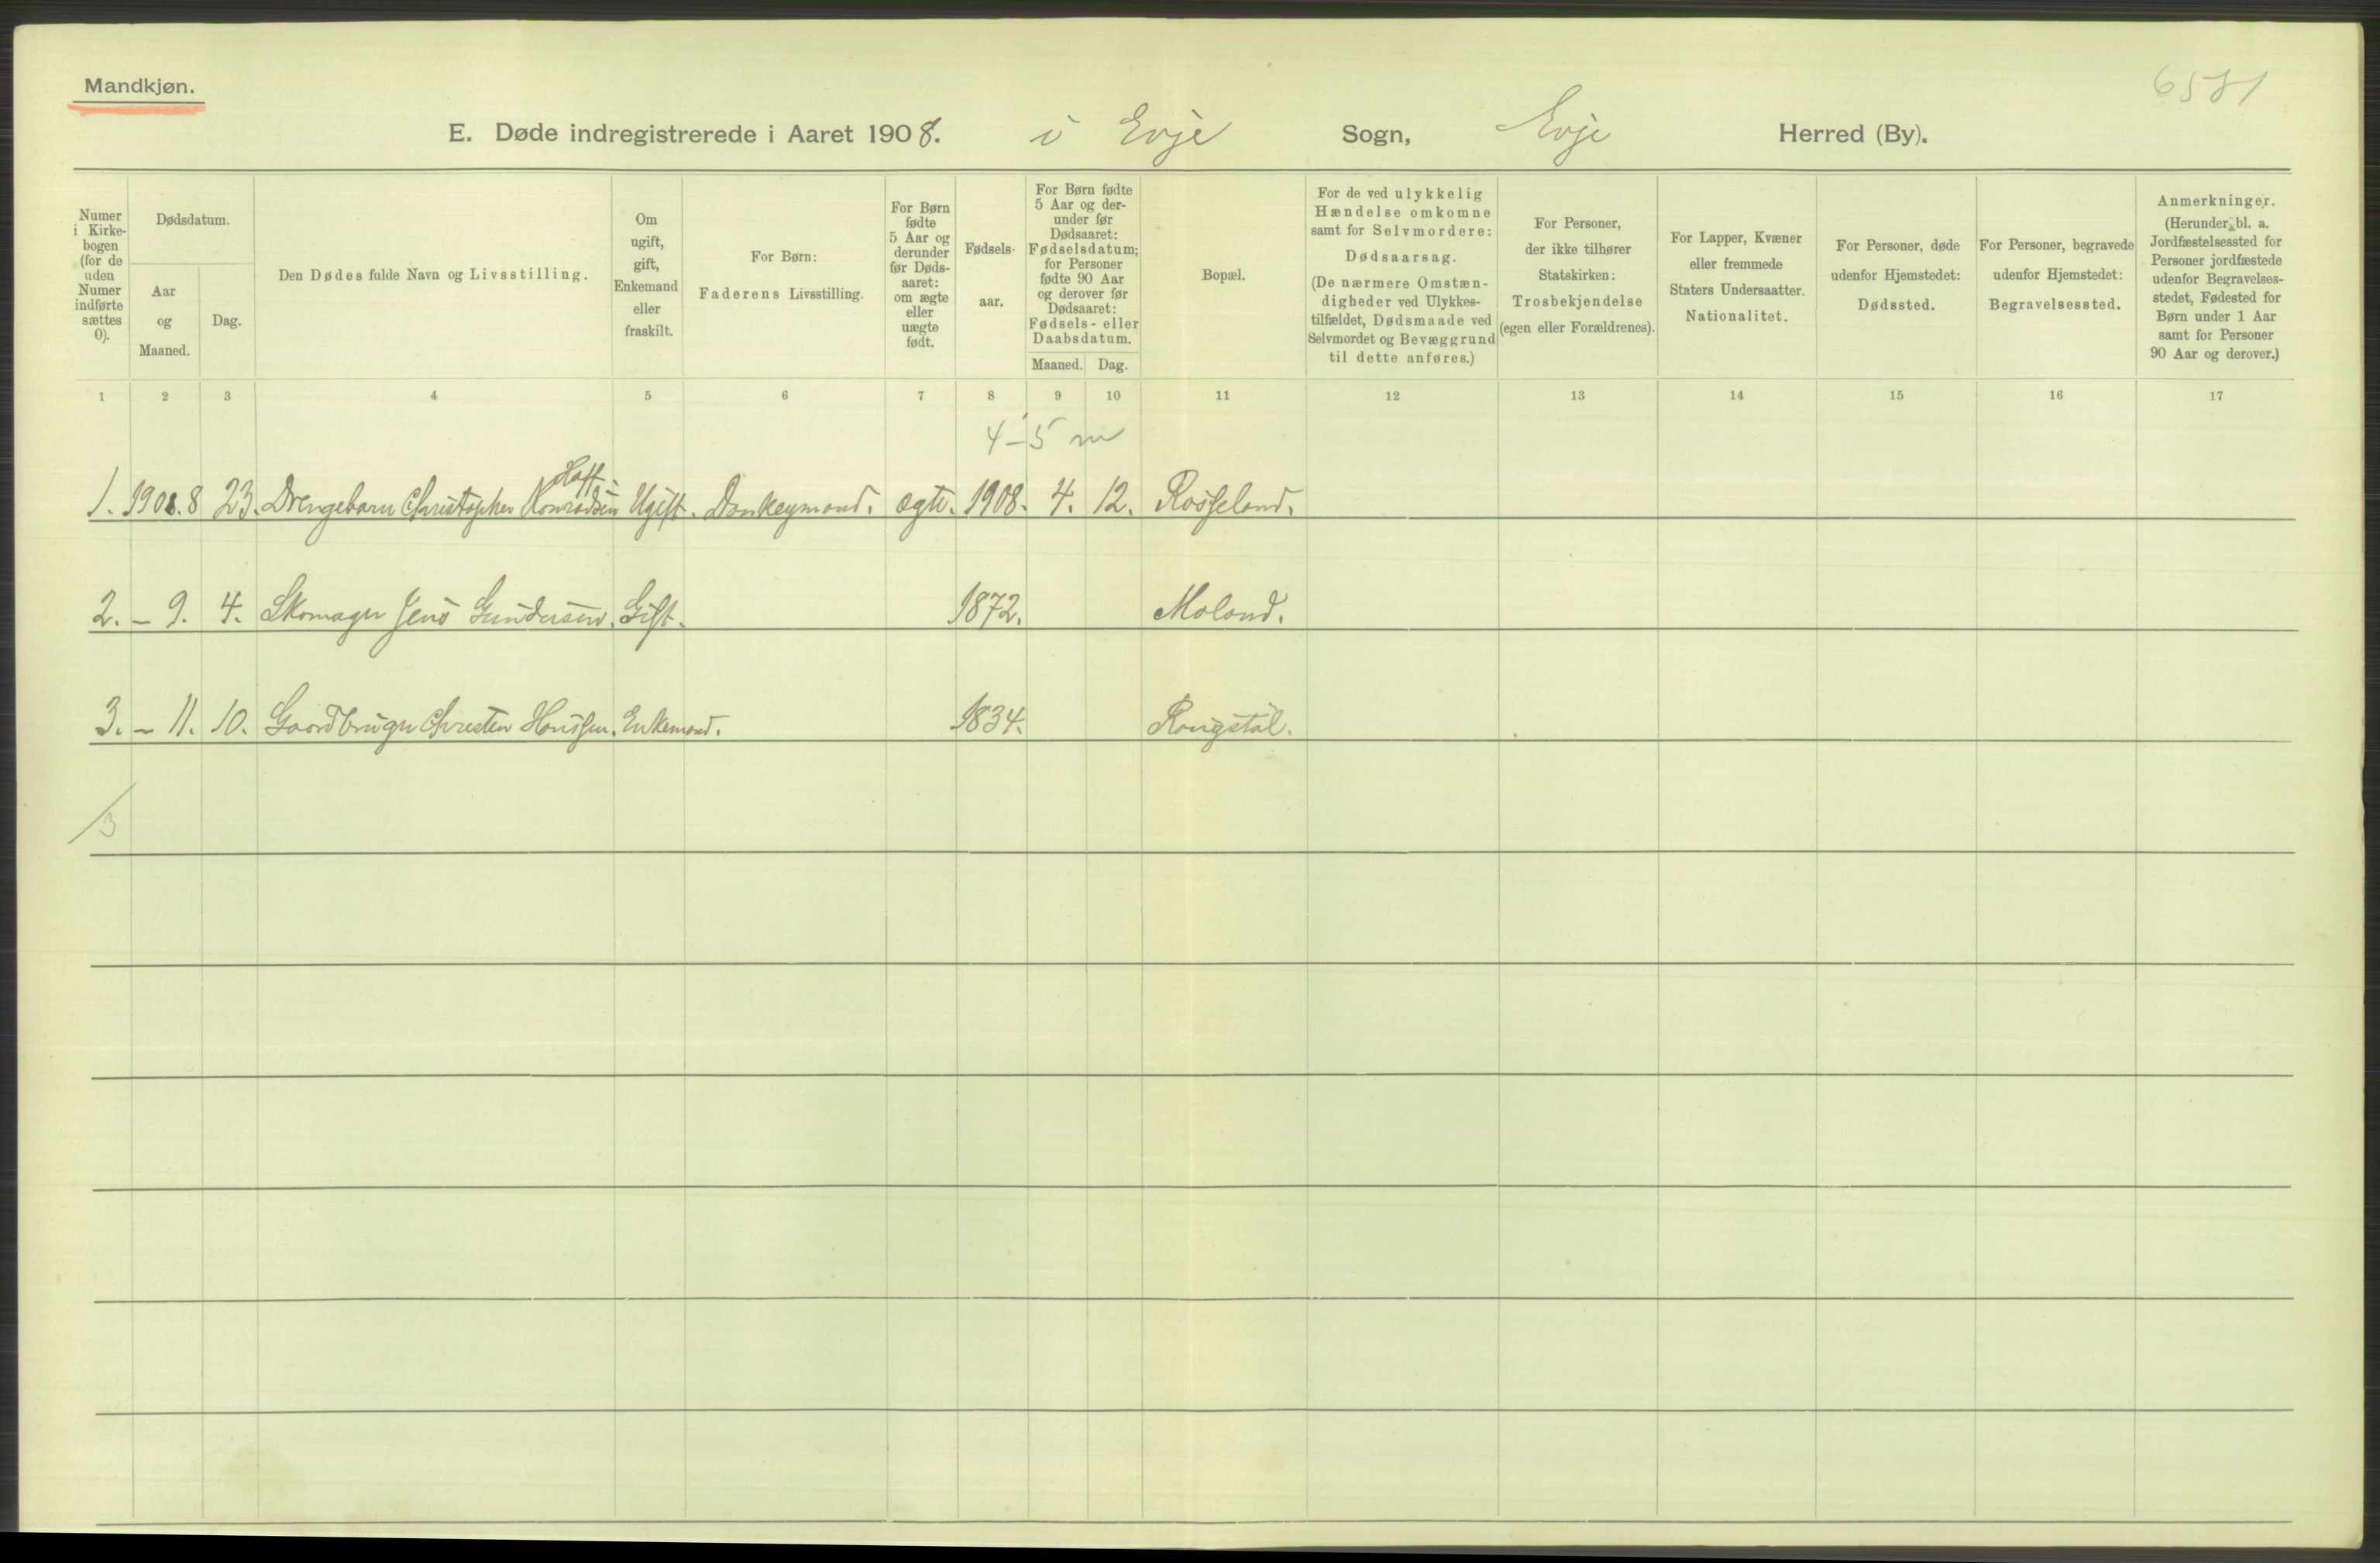 Mandkjøn.
6581
E. Døde indregistrerede i Aaret 1908. i Evje Sogn, Evje Herred (By).
Numer i Kirke-bogen (for de uden Numer indførte sættes 0).
Dødsdatum.
Aar og Maaned.
Dag.
Den Dødes fulde Navn og Livsstilling.
Om ugift, gift, Enkemand eller fraskilt.
For Børn: Faderens Livsstilling.
For Børn fødte 5 Aar og derunder før Døds-aaret: om ægte eller uægte født.
Fødsels-aar.
For Børn fødte 5 Aar og der-under før Dødsaaret: Fødselsdatum; for Personer fødte 90 Aar og derover før Dødsaaret: Fødsels- eller Daabsdatum.
Maaned. Dag.
Bopæl.
For de ved ulykkelig Hændelse omkomne samt for Selvmordere: Dødsaarsag. (De nærmere Omstæn-digheder ved Ulykkes-tilfældet, Dødsmaade ved Selvmordet og Bevæggrund til dette anføres.)
For Personer, der ikke tilhører Statskirken: Trosbekjendelse (egen eller Forældrenes).
For Lapper, Kvæner eller fremmede Staters Undersaatter. Nationalitet.
For Personer, døde udenfor Hjemstedet: Dødssted.
For Personer, begravede udenfor Hjemstedet: Begravelsessted.
Anmerkninger. (Herunder bl. a. Jordfæstelsessted for Personer jordfæstede udenfor Begravelses-stedet, Fødested for Børn under 1 Aar samt for Personer 90 Aar og derover.)
1 2 3 4 5 6 7 8 9 10 11 12 13 14 15 16 17
4-5 m
1. 1908. 8 23. Drengebarn Christopher Konradsen Ugift. Donkeymand. ægte. 1908. 4. 12. Rosseland.
2. - 9. 4. Skomager Jens Gundersen. Gift. 1872. Moland.
3. - 11. 10. Gaardbruger Christen Hanssen. Enkemand. 1834.
3